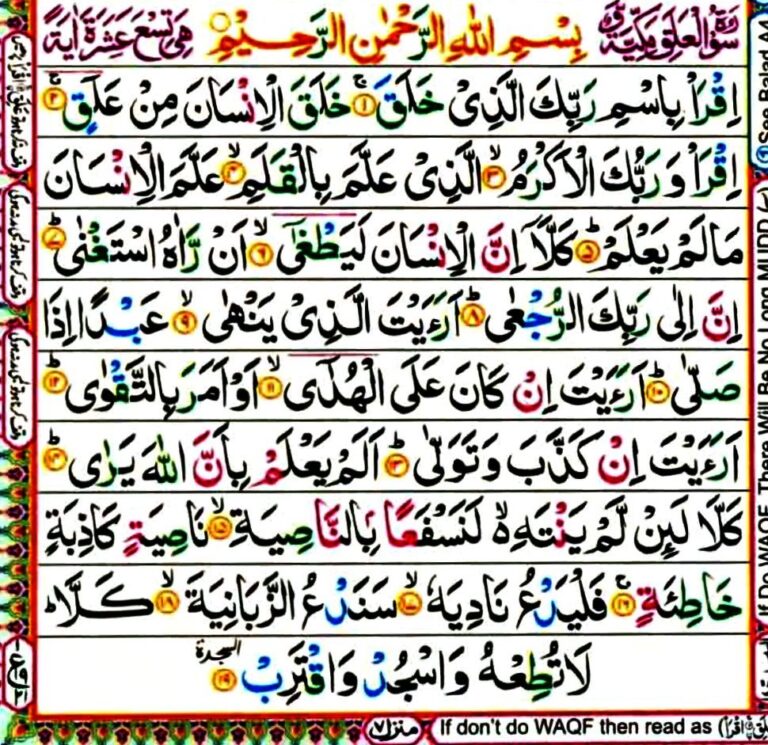 سُوْرَةُ الْعَلَقِ مَكِّيَّةٌ بِسْمِ اللهِ الرَّحْمٰنِ الرَّحِيْمِ هِىَ تِسْعَ عَشْرَةَ اٰيَةً
اِقْرَاْ بِاسْمِ رَبِّكَ الَّذِىْ خَلَقَ ۚ﴿۱﴾ خَلَقَ الْاِنْسَانَ مِنْ عَلَقٍ ۚ﴿۲﴾
اِقْرَاْ وَ رَبُّكَ الْاَكْرَمُ ۙ﴿۳﴾ الَّذِىْ عَلَّمَ بِالْقَلَمِ ۙ﴿۴﴾ عَلَّمَ الْاِنْسَانَ
مَا لَمْ يَعْلَمْ ؕ﴿۵﴾ كَلَّاۤ اِنَّ الْاِنْسَانَ لَيَطْغٰٓى ۙ﴿۶﴾ اَنْ رَّاٰهُ اسْتَغْنٰى ؕ﴿۷﴾
اِنَّ اِلٰى رَبِّكَ الرُّجْعٰى ؕ﴿۸﴾ اَرَءَيْتَ الَّذِىْ يَنْهٰى ۙ﴿۹﴾ عَبْدًا اِذَا
صَلّٰى ؕ﴿۱۰﴾ اَرَءَيْتَ اِنْ كَانَ عَلَى الْهُدٰٓى ۙ﴿۱۱﴾ اَوْ اَمَرَ بِالتَّقْوٰى ؕ﴿۱۲﴾
اَرَءَيْتَ اِنْ كَذَّبَ وَ تَوَلّٰى ؕ﴿۱۳﴾ اَلَمْ يَعْلَمْ بِاَنَّ اللّٰهَ يَرٰى ؕ﴿۱۴﴾
كَلَّا لَئِنْ لَّمْ يَنْتَهِ ۙ لَنَسْفَعًا بِالنَّاصِيَةِ ۙ﴿۱۵﴾ نَاصِيَةٍ كَاذِبَةٍ
خَاطِئَةٍ ۚ﴿۱۶﴾ فَلْيَدْعُ نَادِيَهٗ ۙ﴿۱۷﴾ سَنَدْعُ الزَّبَانِيَةَ ۙ﴿۱۸﴾ كَلَّا ؕ
لَا تُطِعْهُ وَاسْجُدْ وَاقْتَرِبْ ﴿۱۹﴾ السجدة
منزل ۷
If don't do WAQF then read as
See Balad
If Do WAQF There Will Be No Long MUDD